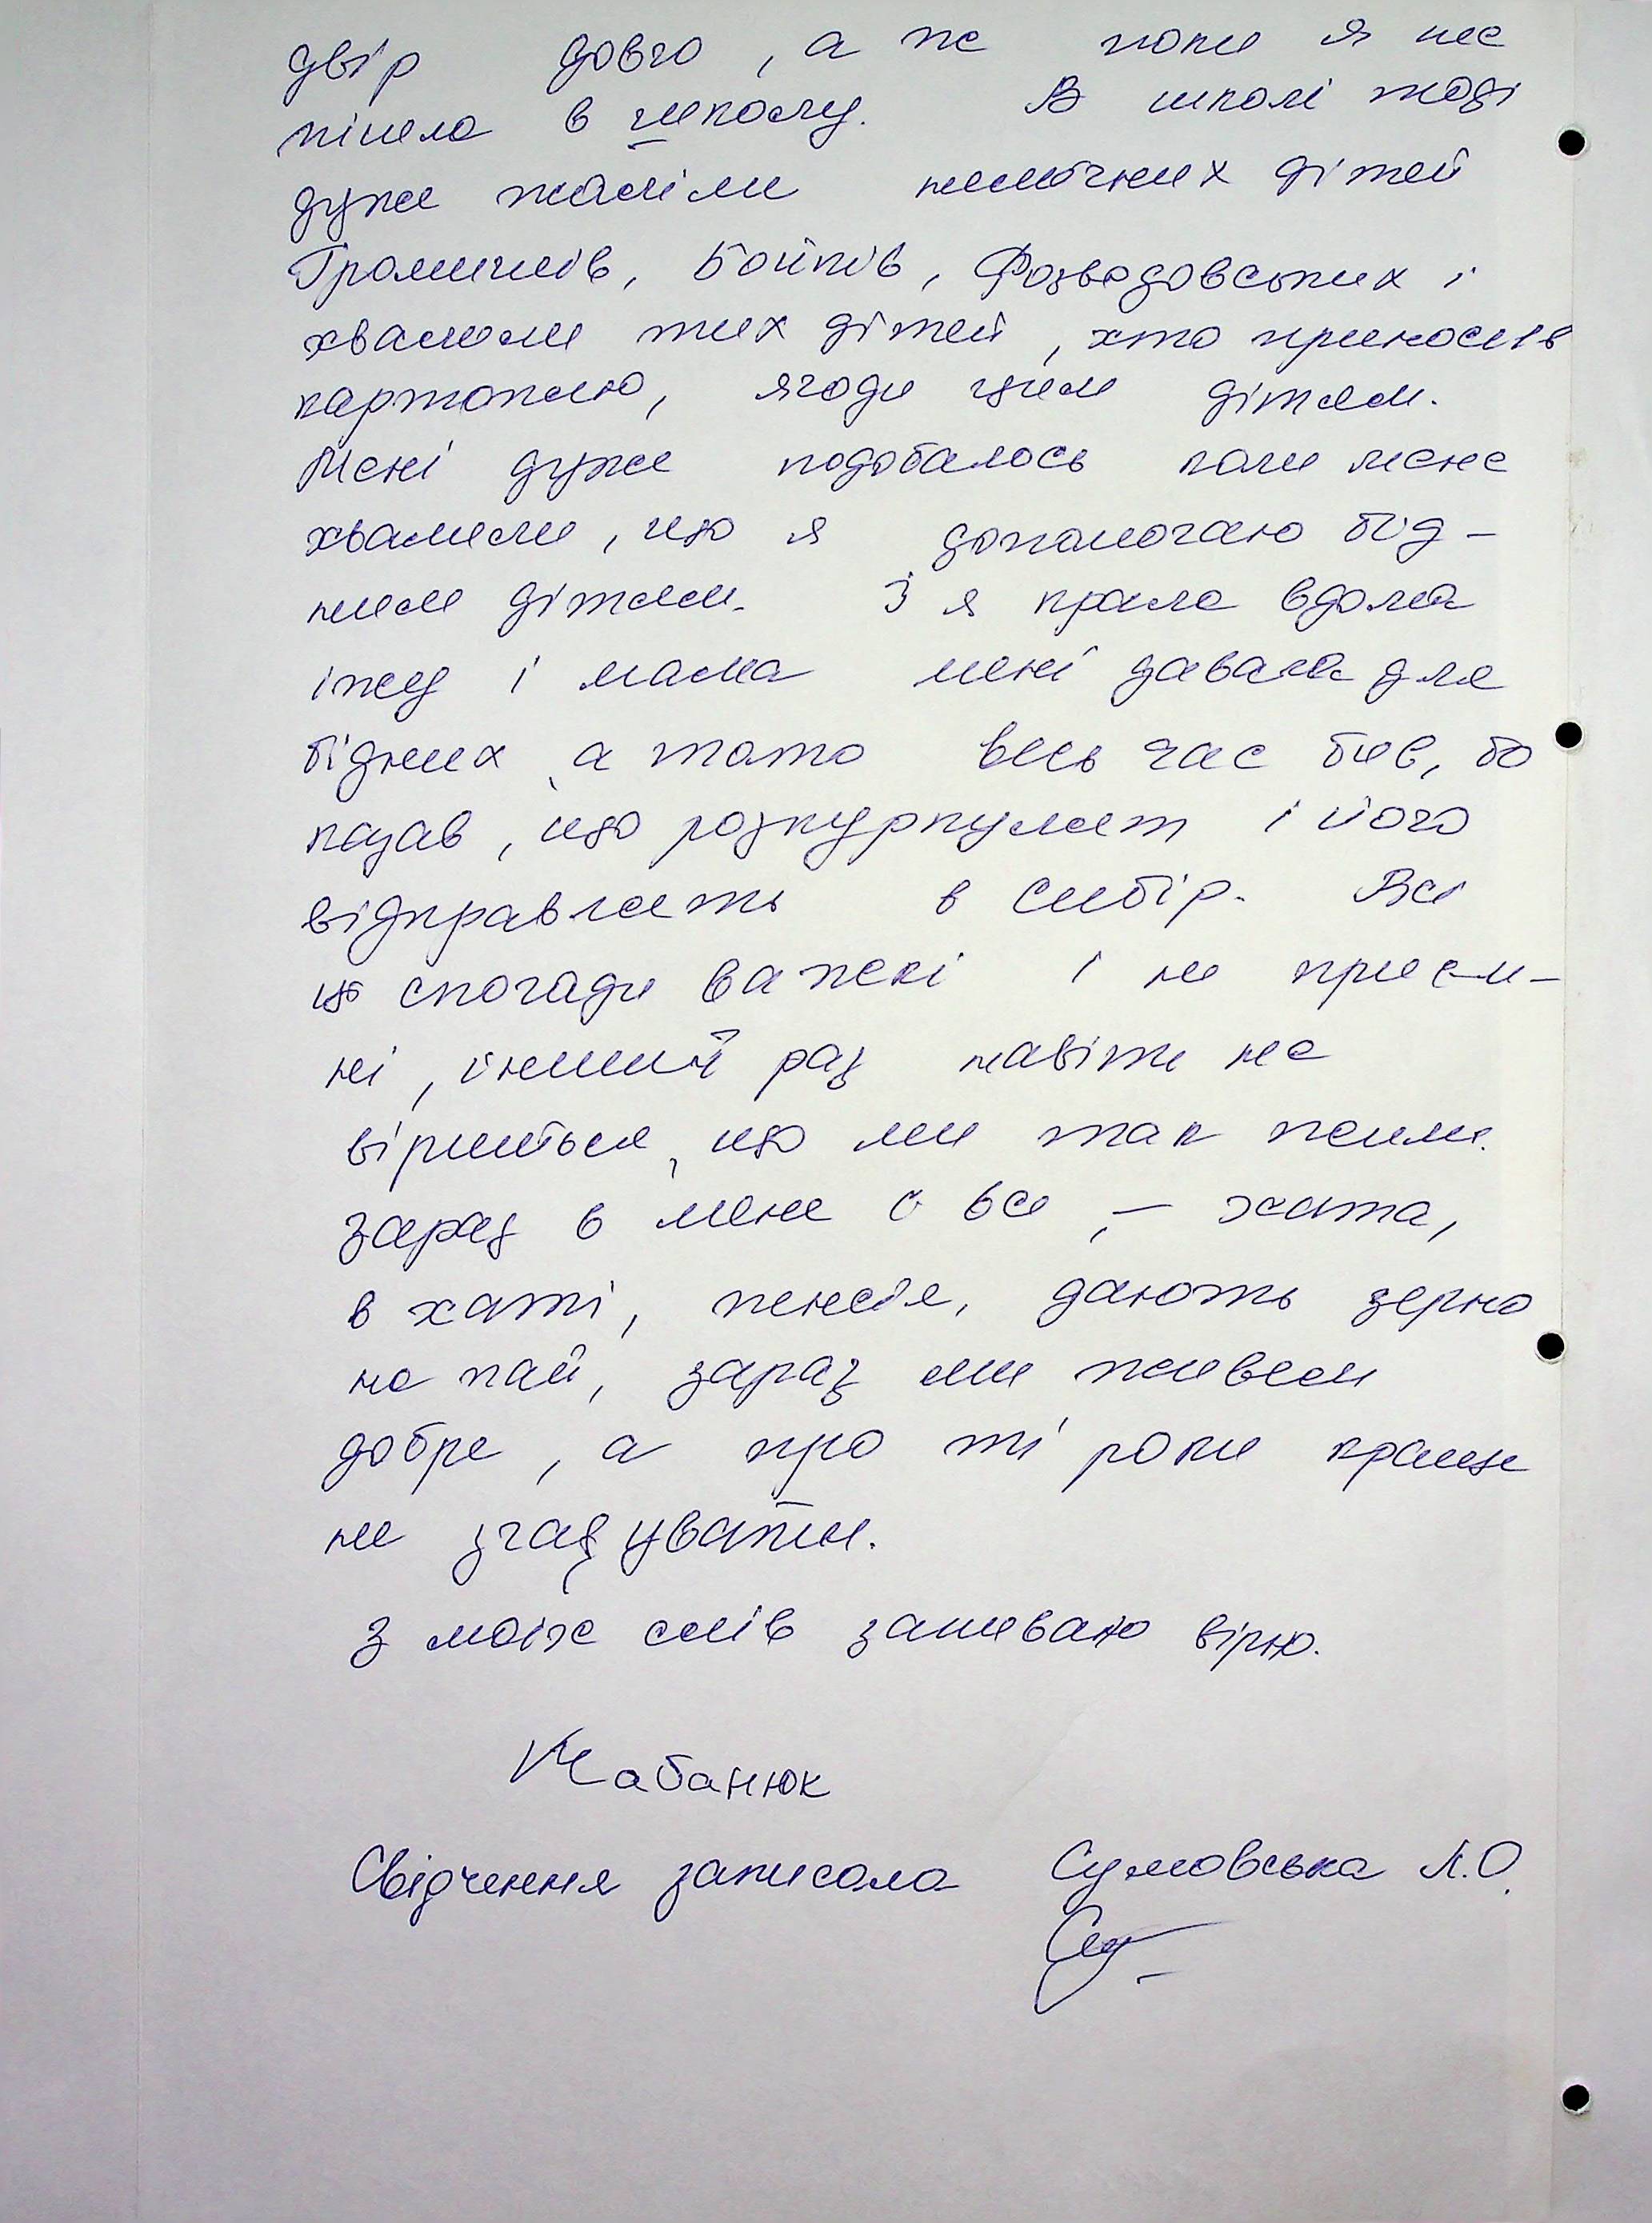 двір довго, а же поки я не
пішла в школу. В школі тоді
дуже жаліли немічних дітей
Бойків, Розводовських і
хвалили тих дітей, хто приносив
картоплю, ягоди цим дітям.
Мені дуже подобалось коли мене
хвалили, що я допомогаю бід-
ним дітям. І я крала вдома
їжу і мама мені давала для
бідних, а тато весь час бив, бо
казав, що розкуркулят і його
відправлять в Сибір. Всі
ці спогади важкі і не приєм-
ні, інший раз навіть не
віриться, що ми так жили.
Зараз в мене є все, - хата,
в хаті, пенсія, дають зерно
на пай, зараз ми живем
добре, а про ті роки краще
не згадувати.
З моїх слів записано вірно.
Чабанюк
Свідчення записала Сумовська Л.О.